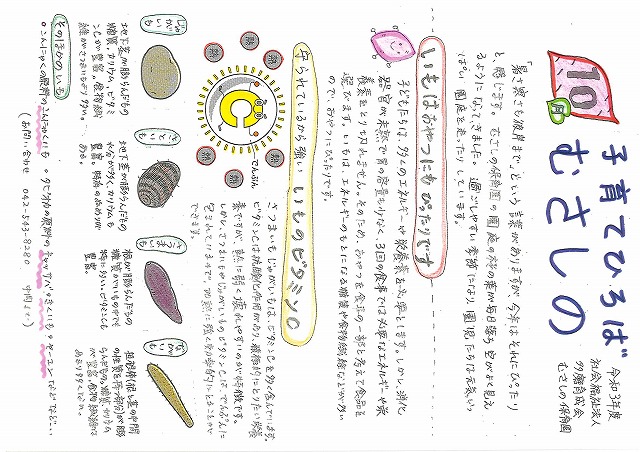 10月
子育てひろば
むさしの
令和3年度
社会福祉法人
多摩育成会
むさしの保育園
「暑さ寒さも彼岸まで」という言葉がありますが、今年はそれにぴったり
と感じます。むさしの保育園の園庭の桜の葉が毎日落ち、空がよく見え
るようになってきました。過ごしやすい季節になり、園児たちは元気いっ
ぱい、園庭を走ったりしています。
いもはおやつにもぴったりです
子どもたちは、多くのエネルギーや栄養素を必要とします。しかし、消化
器官が未熟で胃の容量も少なく、3回の食事では必要なエネルギーや栄
養素をとりきれません。そのため、おやつを食事の一部と考えて食品を
選びます。いもは、エネルギーのもとになる糖質や食物繊維などが多い
ので、おやつにぴったりです。
守られているから強い いものビタミンC
熱
熱
熱
熱
熱
熱
C
でんぷん
さつまいもじゃがいもは、ビタミンCを多く含んでいます。
ビタミンCは抗酸化作用があり、積極的にとりたい栄養
素ですが、熱に弱く壊れやすいのが特徴です。
しかし、さつまいもやじゃがいものビタミンCは、でんぷんに
包まれているので、加熱に強く効率よくとることが
できます。
じゃがいも
地下茎が膨らんだもの
糖質、カリウム、ビタミ
ンCが豊富。食物繊
維がさつまいもより少ない。
さといも
地下茎が膨らんだもの
水分が多く、カリウムも
豊富。特有のぬめりが
ある。
さつまいも
根が膨らんだもの
糖質がいもの中でも
特に多い。ビタミンCも
豊富。
ながいも
担根体(根と茎の中間
の性質を持つ部分)が膨
らんだもの。
その他のいも
○こんにゃくの原料のこんにゃくいも
○タピオカの原料のキャッサバ
などなど…
(お問い合せ 042-543-8280